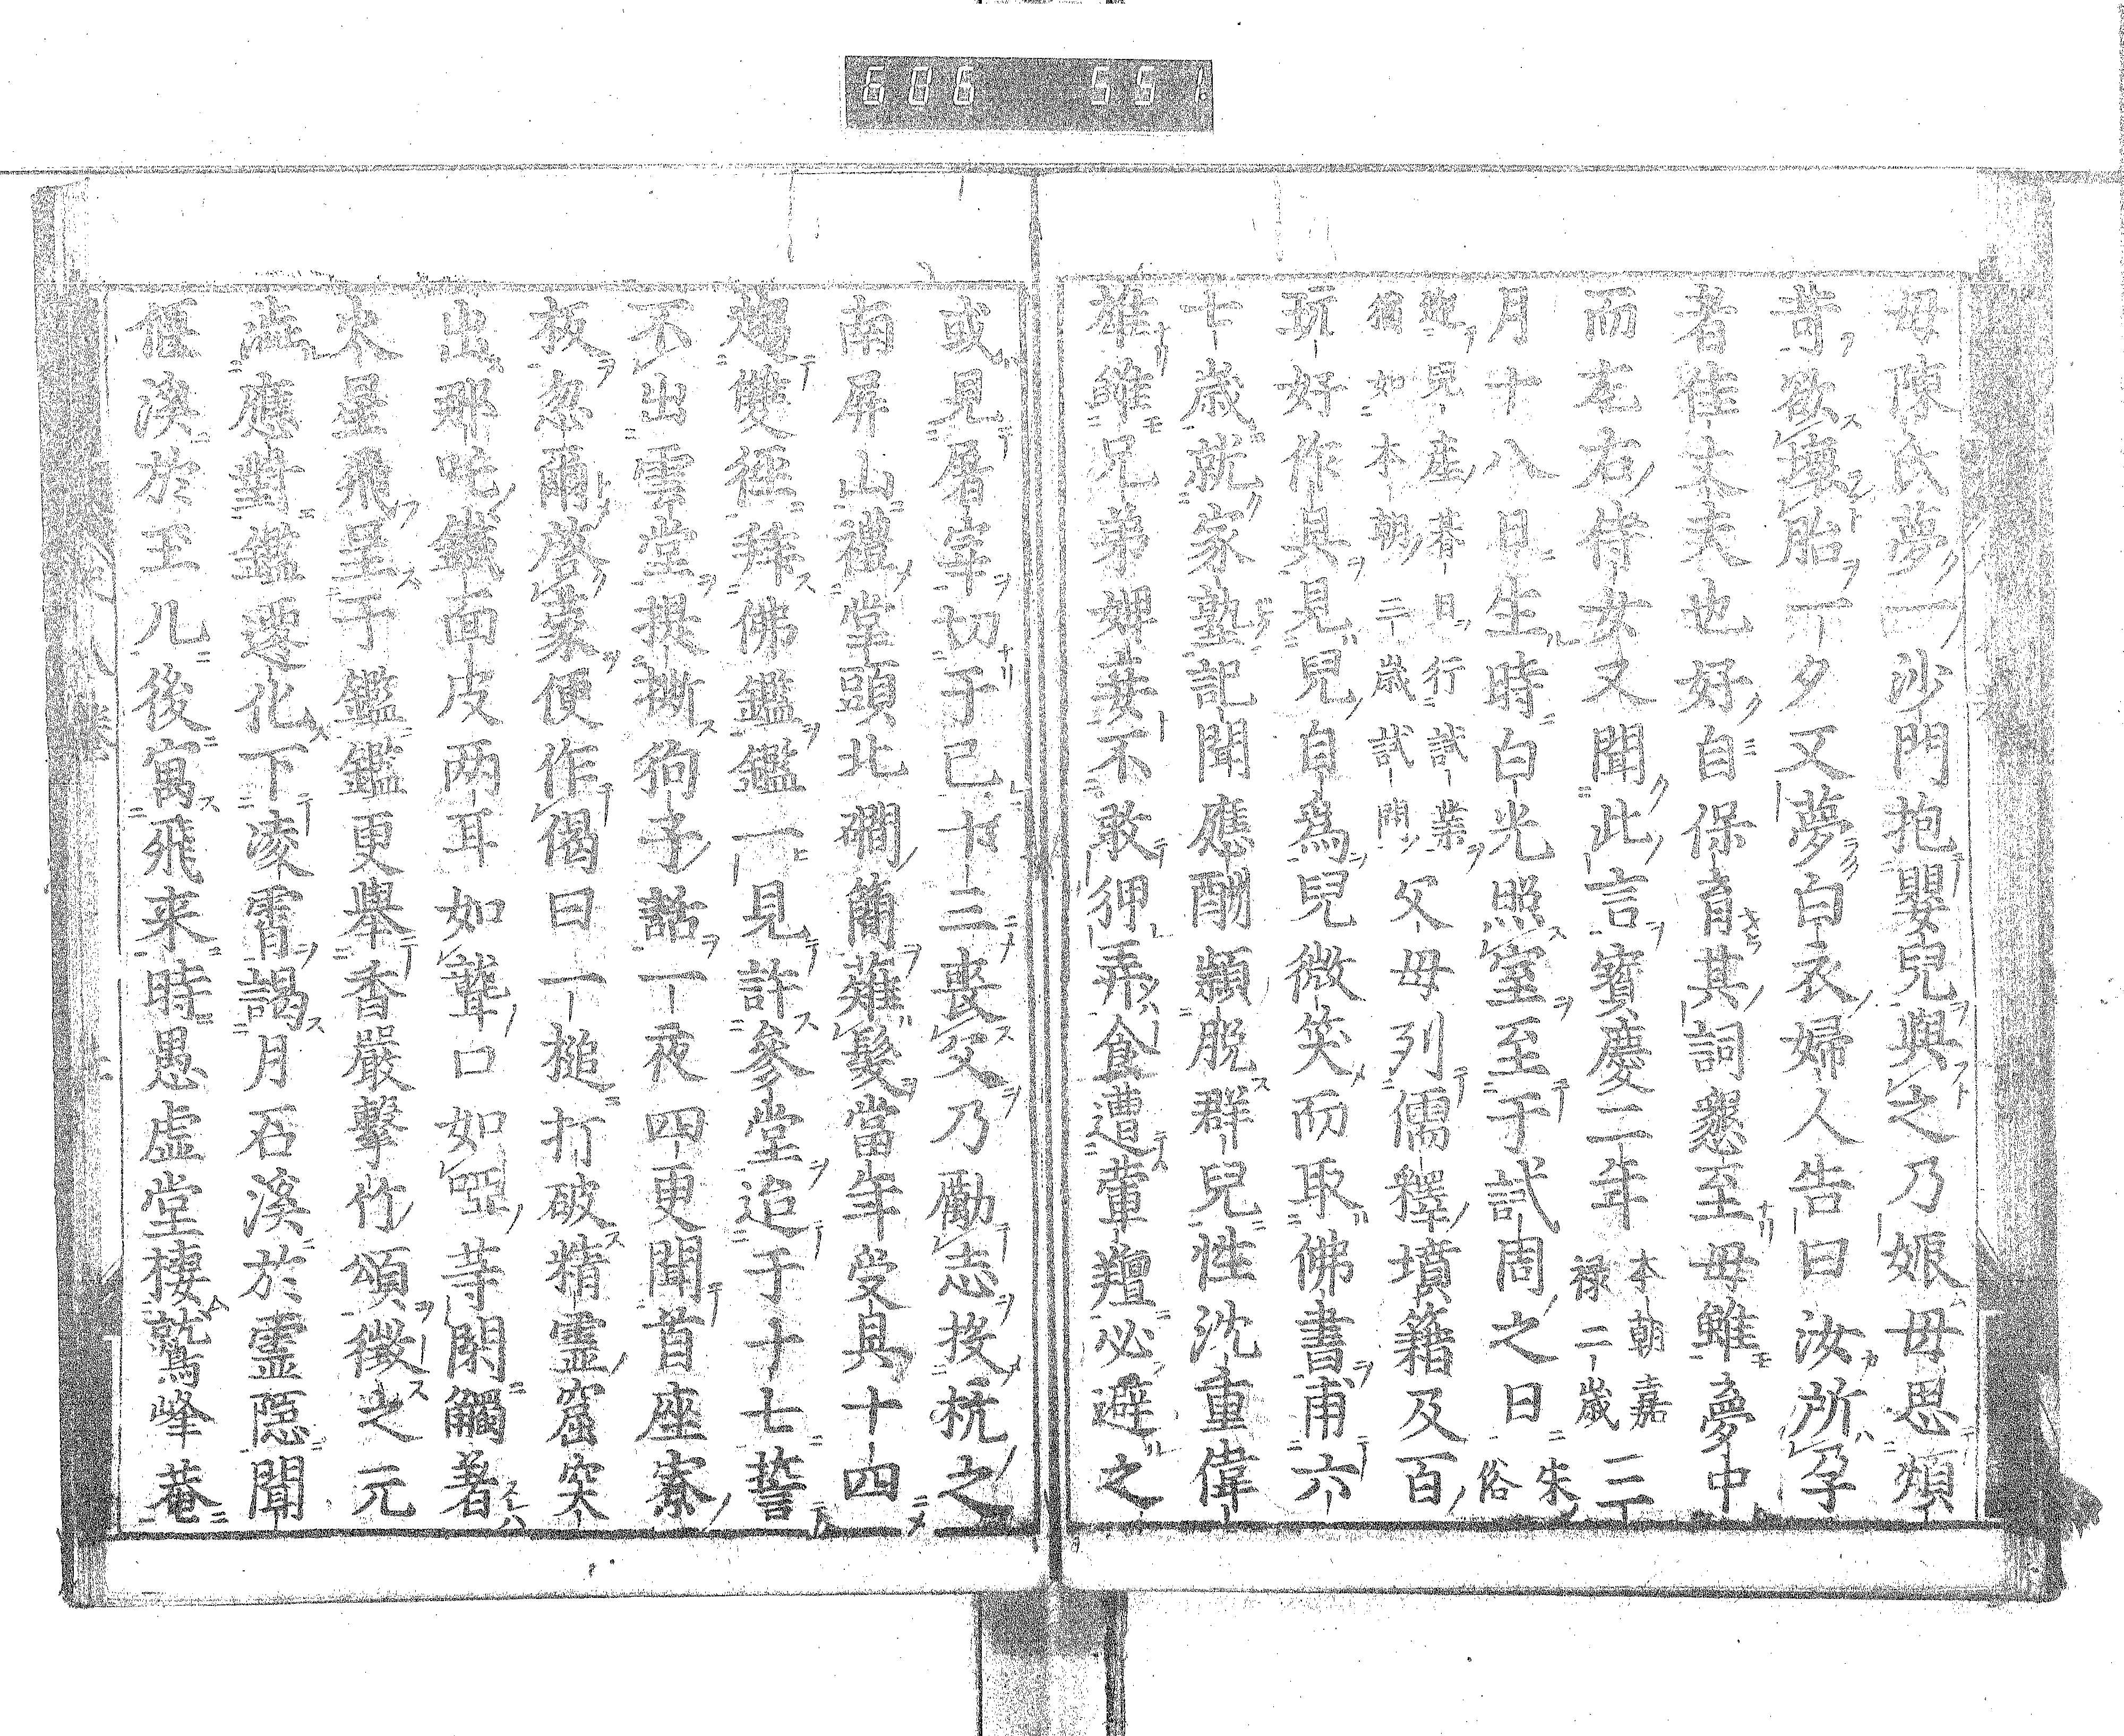 606 551
母陳氏夢一沙門抱嬰兒與之乃娠母思煩
苛欲壞胎一夕又夢白衣婦人告曰汝所孕
者佳丈夫也好自保育其詞懇至母雖夢中
而左右侍女又聞此言寶慶二年本朝嘉禄二歳三
月十八日生時白光照室至于試周之日朱俗
迎兒產朞日行試業猶如本朝二歲試開父母列儒釋墳籍及百
玩好作具見兒自爲兒微笑而取佛書甫六
七歳就家塾記聞應酬穎脱群兒性沈重偉
雄雖兄弟婢妾不敢狎弄食遭葷羶必避之
或見屠宰切于己十三喪父乃勵志投杭之
南屏山禮掌頭北磵簡薙髮當年受具十四
趨雙徑拜佛鑑鑑一見許參堂追于十七誓
不出雲堂提撕狗子話一夜四更聞首座寮
板忽爾啓蒙便作偈曰一槌打破精靈窟突
出那吒鐵面皮两耳如聾口如啞等閑觸着
火星飛呈于鑑鑑更舉香嚴擊竹頌徴之元
應對鑑遷化下凌霄謁月石溪於靈隱聞
偃溪於王几後寓飛来時愚虚堂棲鷲峰菴